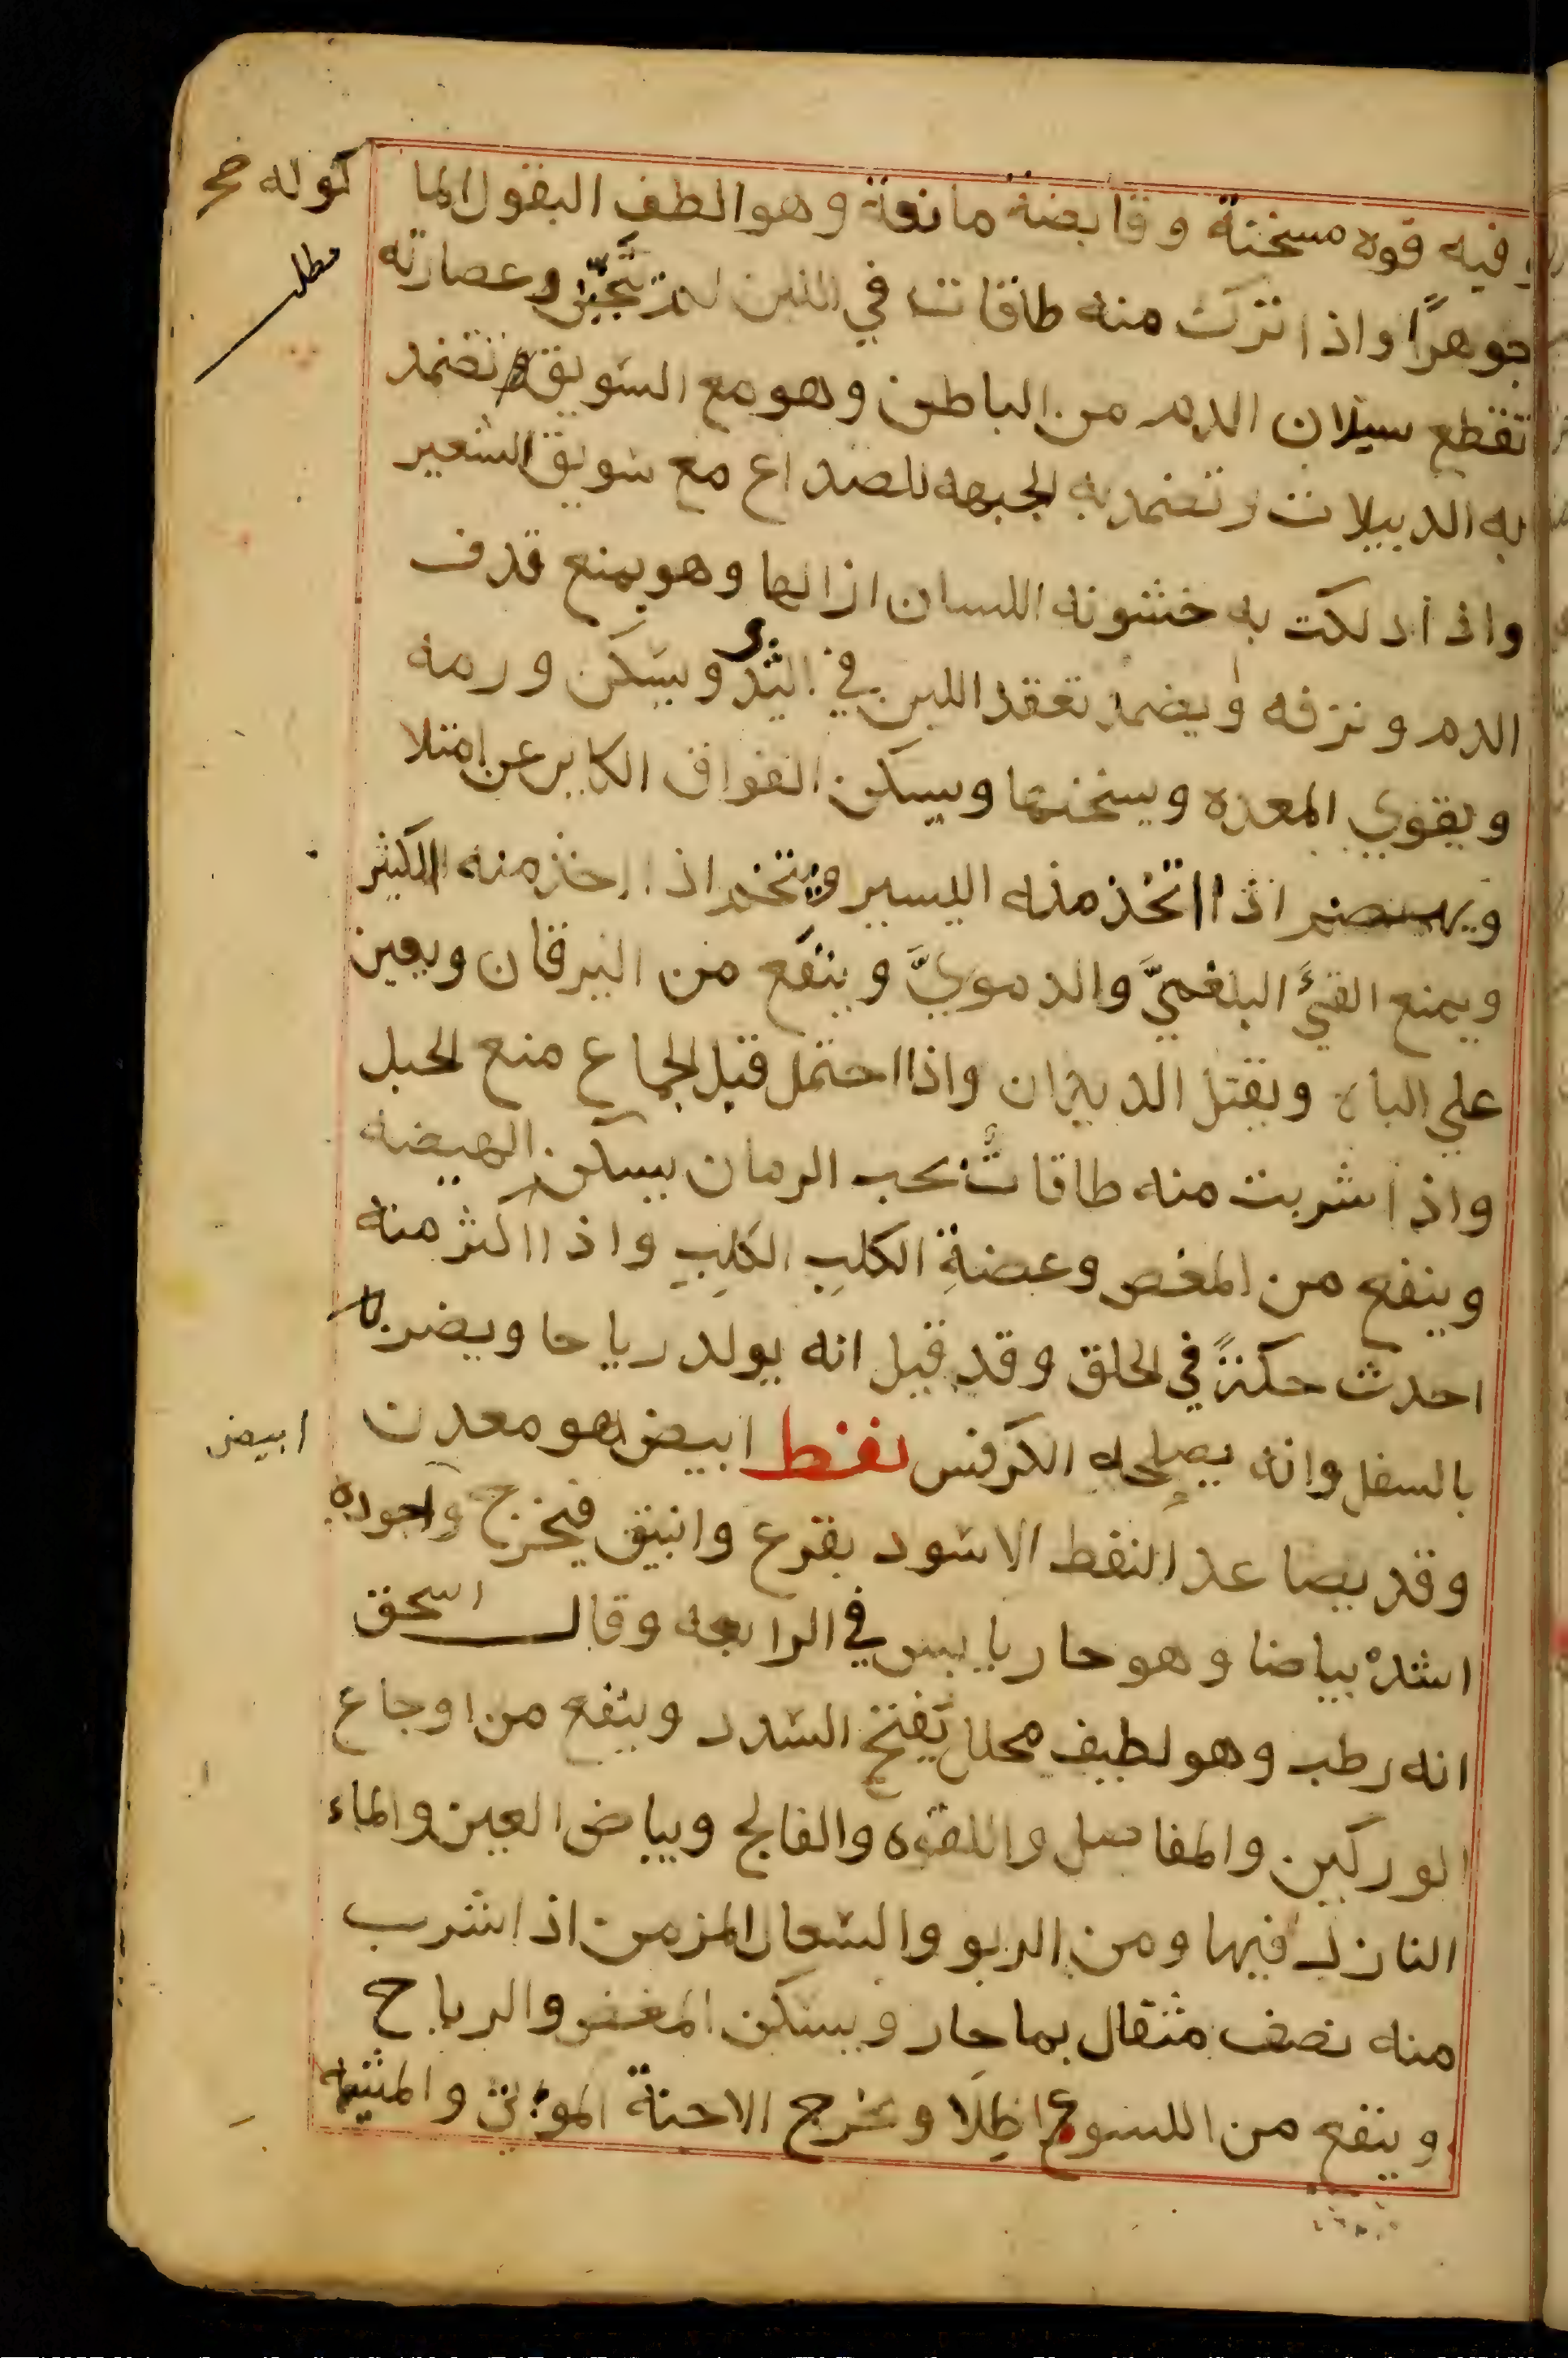 وفيه قوه مسخنة وقابضة مانعة وهو الطف البقول الما
كوله صح
جوهرًا واذا ترك منه طاقات في اللبن لم يتجبن وعصارته
مطلب
تقطع سيلان الدم من الباطن وهو مع السويق تضمد
به الدبيلات وتضمد به الجبهه للصداع مع سويق الشعير
واذا دلكت به خشونه اللسان ازالها وهو يمنع قدف
الدم ونزفه ويضمد تعقد اللبن في الثدي ويسكن ورمه
ويقوي المعده ويسخنها ويسكن الفواق الكاين عن امتلا
اذا اتخذ منه اليسير ويتخم اذا اخذ منه الكثير
ويمنع القيء البلغميَّ والدمويَّ وينفع من اليرقان ويعين
علي الباه ويقتل الديدان واذا احتمل قبل الجماع منع الحبل
واذا شربت منه طاقات بحب الرمان يسكن الهيضه
وينفع من المغص وعضةِ الكلبِ الكَلِبِ واذا اكثر منه
احدث حكةً في الحلق وقد قيل انه يولد رياحا ويضر
بالسفل وانه يصلحه الكرفس نفط ابيض هو معدن
ابيض
وقد يصاعد النفط الاسود بقرع وانبيق فيخرج واجوده
اشده بياضا وهو حار يابس في الرابعه وقال اسحق
انه رطب وهو لطيف محلل يفتح السدد وينفع من اوجاع
الوركين والمفاصل واللقوه والفالج وبياض العين والماء
النازل فيها ومن الربو والسعال المزمن اذا شرب
منه نصف مثقال بماحار ويسكن المغص والرياح
وينفع من اللسوع اطِلَا ويخرج الاجنة الموتي والمشيمه